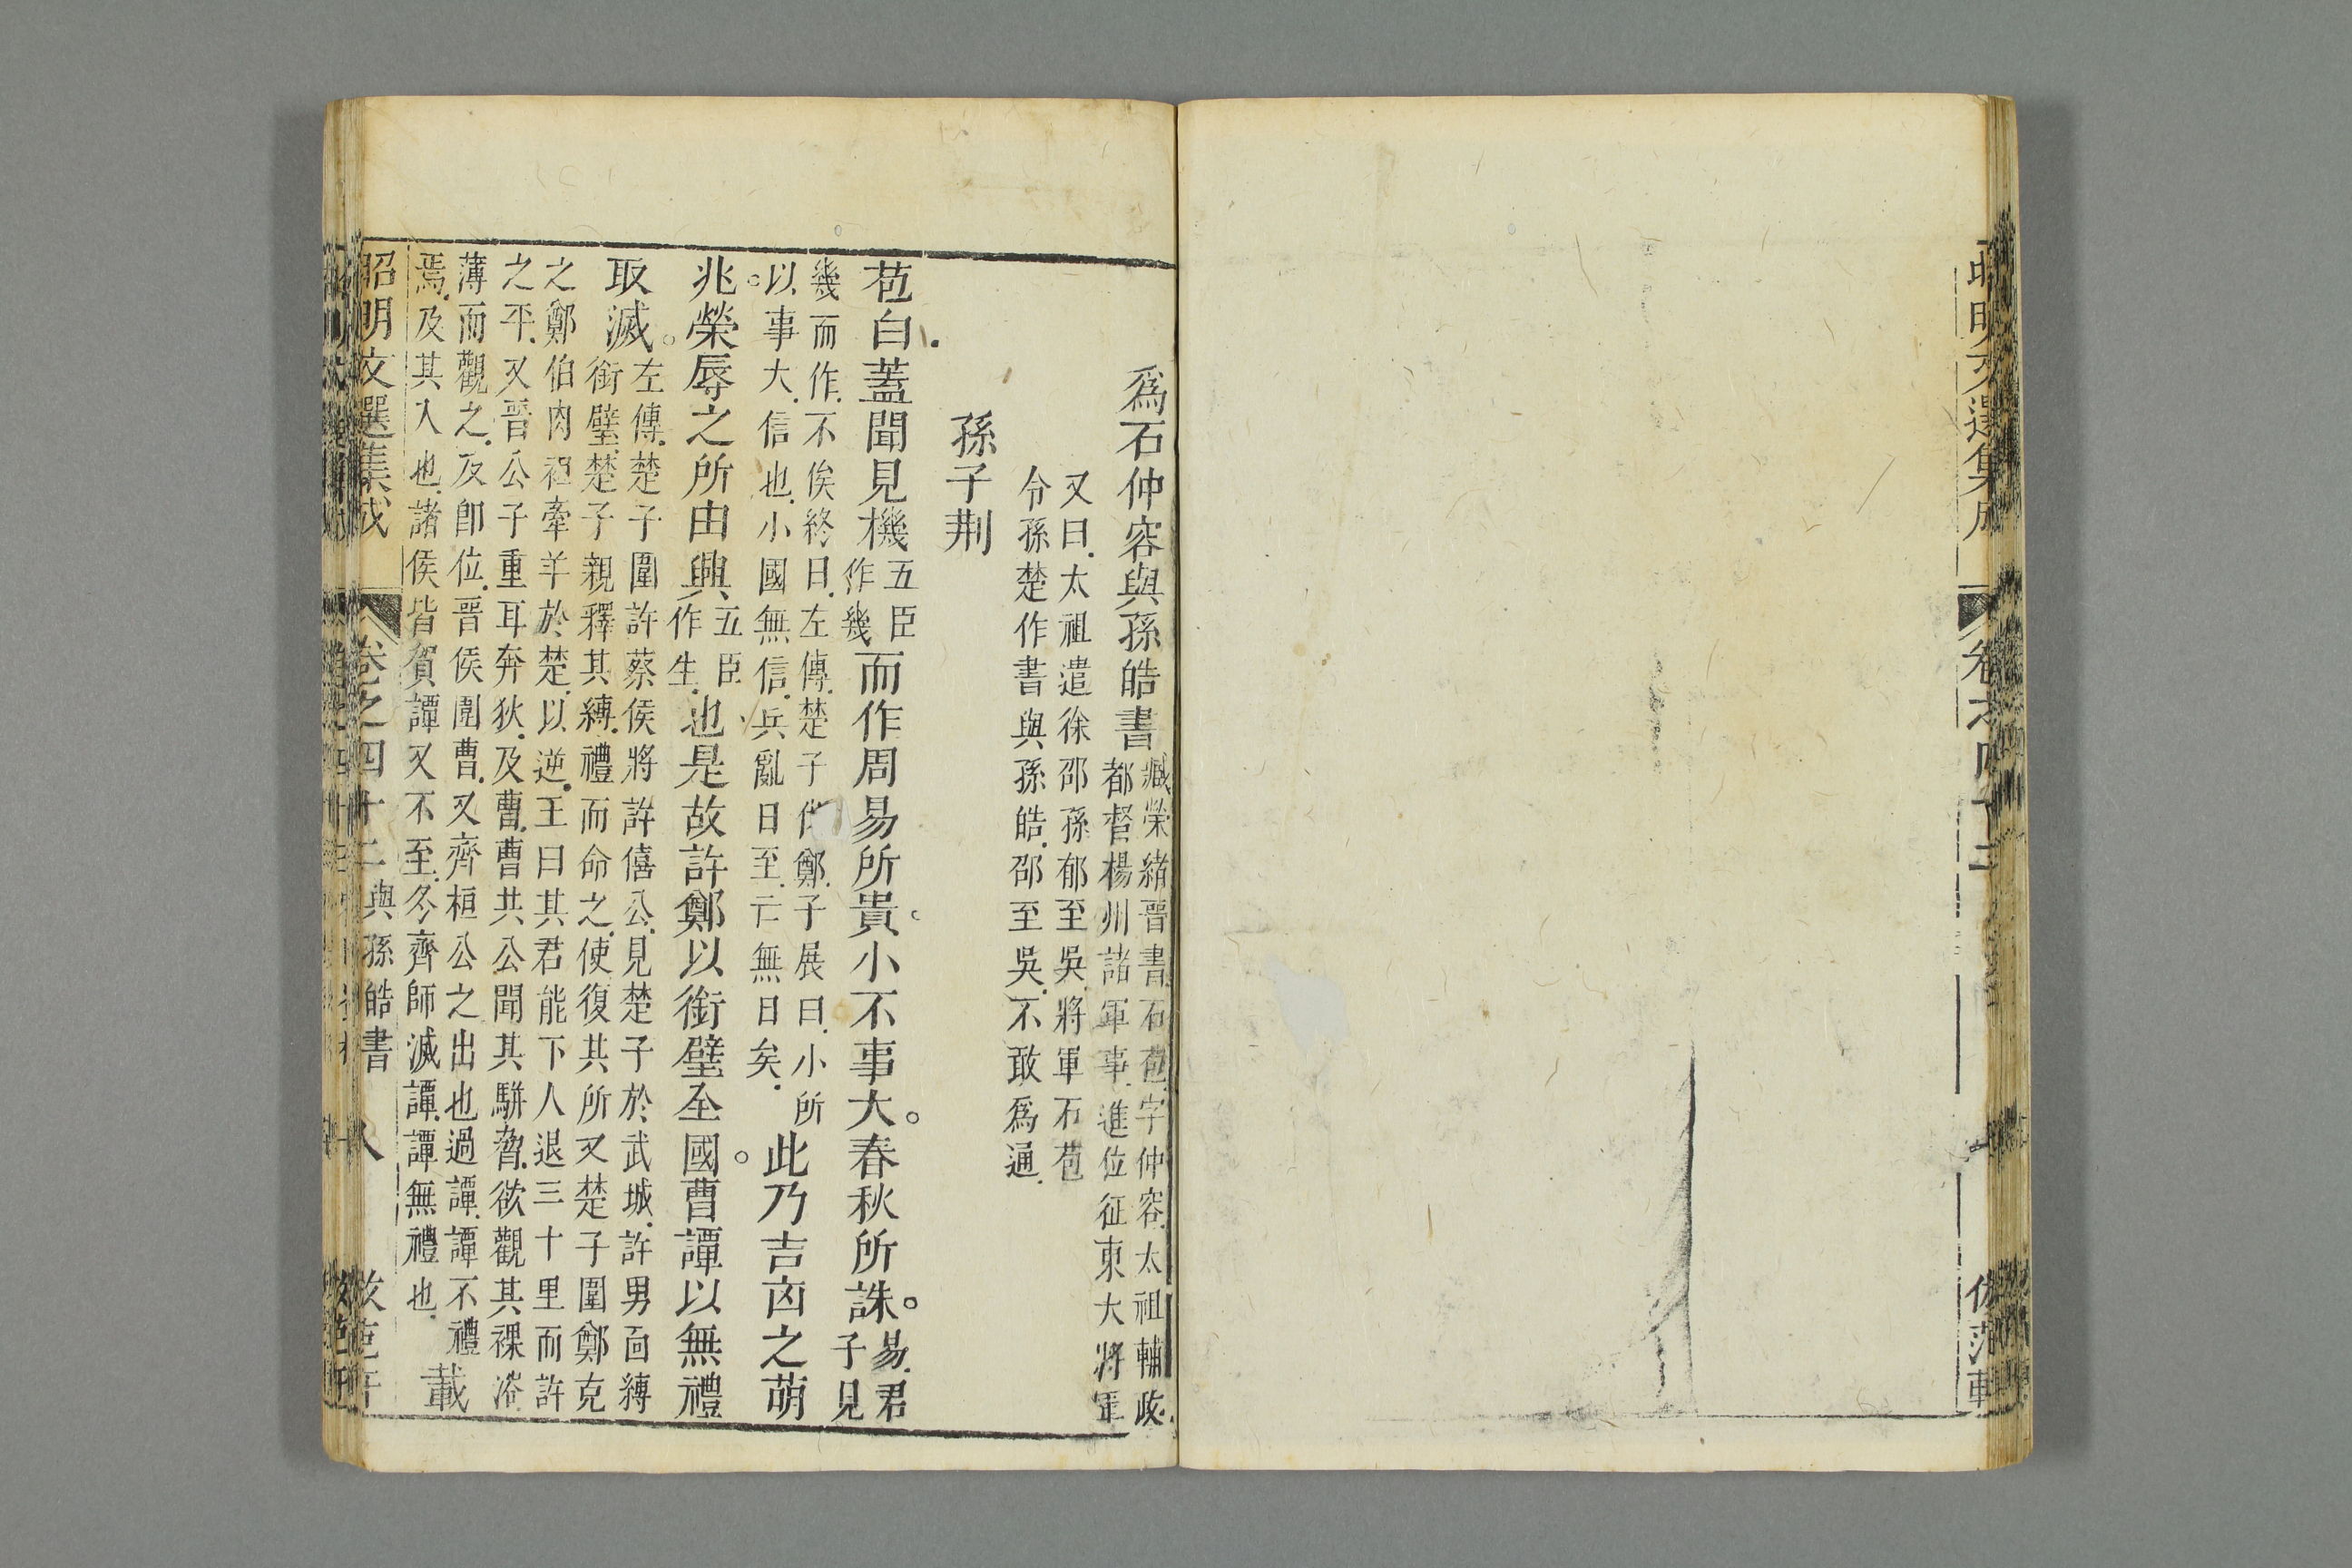 爲石仲容與孫皓書臧榮緒晉書石苞字仲容太祖輔政
都督楊州諸軍事進位征東大將軍
又曰太祖遣徐邵孫郁至吳將軍石苞
令孫楚作書與孫皓邵至吳不敢爲通
孫子荆
苞白蓋聞見機五臣作幾而作周易所貴。小不事大。春秋所誅。易君子見
幾而作不俟終日左傳楚子伐鄭子展曰小所
以事大信也小國無信兵亂日至亡無日矣此乃吉㐫之萌
兆。榮辱之所由興五臣作生也是故許鄭以銜璧全國。曹譚以無禮
取滅。左傳楚子圍許蔡侯將許僖公見楚子於武城許男面縛
銜璧楚子親釋其縛禮而命之使復其所又楚子圍鄭克
之鄭伯肉袒牽羊於楚以逆王曰其君能下人退三十里而許
之平又晉公子重耳奔狄及曹曹共公聞其駢脅欲觀其裸浴
薄而觀之及卽位晉侯圍曹又齊桓公之出也過譚譚不禮
焉及其入也諸侯皆賀譚又不至冬齊師滅譚譚無禮也載
昭明文選集成 卷之四十二 與孫皓書 八
昭明文選集成